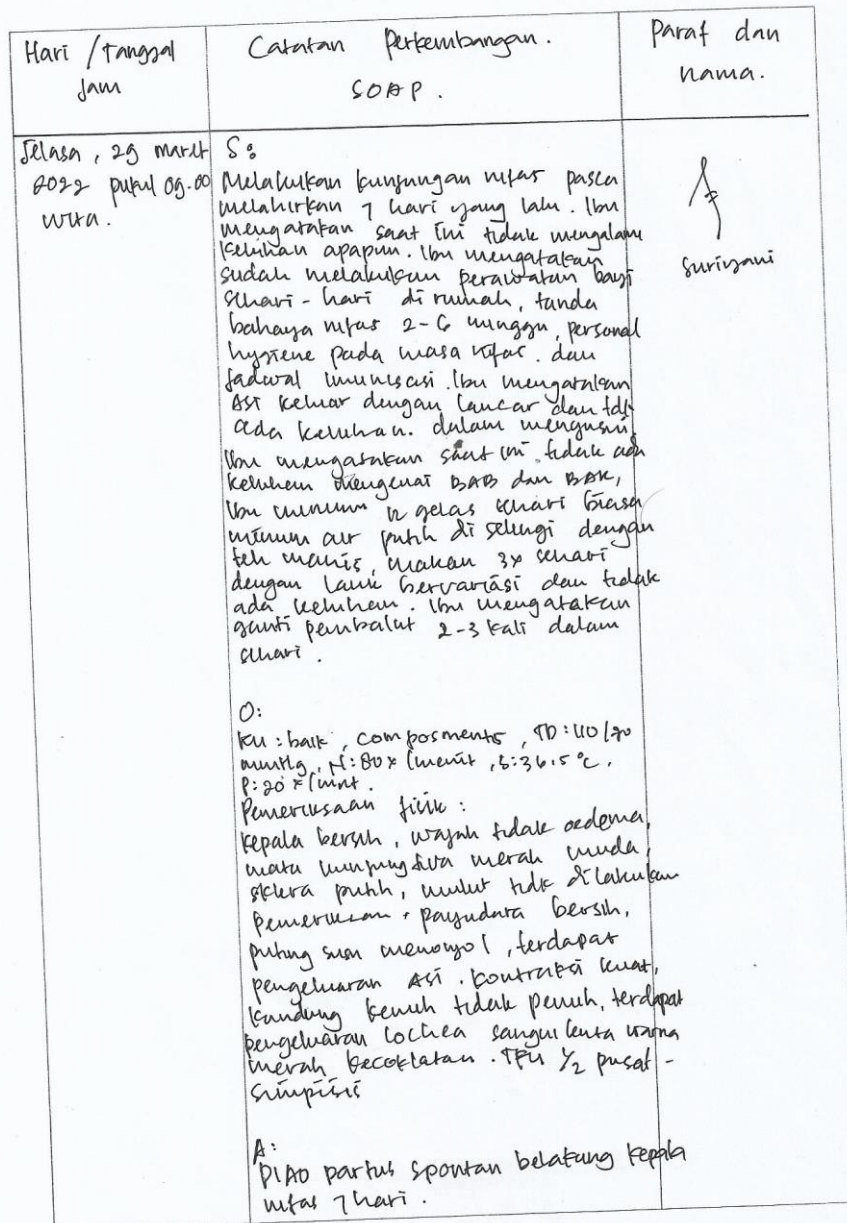 Hari / Tanggal
Jam
Catatan Perkembangan.
SOAP.
Paraf dan
nama.
Selasa, 29 maret
2022 pukul 09.00
wita.
S:
Melakukan kunjungan nifas pasca
melahirkan 7 hari yang lalu. Ibu
mengatakan saat ini tidak mengalami
keluhan apapun. Ibu mengatakan
sudah melakukan perawatan bayi
sehari-hari di rumah, tanda
bahaya nifas 2-6 minggu, personal
hygiene pada masa nifas. dan
jadwal imunisasi. Ibu mengatakan
ASI keluar dengan lancar dan tdk
ada keluhan. dalam mengusui,
Ibu mengatakan saat ini tidak ada
keluhan mengenai BAB dan BAK,
Ibu minum 12 gelas sehari biasa
minum air putih di selingi dengan
teh manis, makan 3x sehari
dengan lauk bervariasi dan tidak
ada keluhan. Ibu mengatakan
ganti pembalut 2-3 kali dalam
sehari.
Suriyani
O:
KU: baik, composments, TD: 110/70
mmHg, N: 80x/menit, S: 36.5°C.
P: 20x/mnt.
Pemeriksaan fisik:
Kepala bersih, wajah tidak oedema,
mata kunjungtiva merah muda,
sklera putih, mulut tidk dilakukan
pemeriksaan, payudara bersih,
puting susu menonjol, terdapat
pengeluaran ASI. kontraksi kuat,
kandung kemih tidak penuh, terdapat
pengeluaran lochea sanguilenta warna
merah kecoklatan. TFU 1/2 pusat -
simpisis
A:
P1A0 partus spontan belakang kepala
nifas 7 hari.